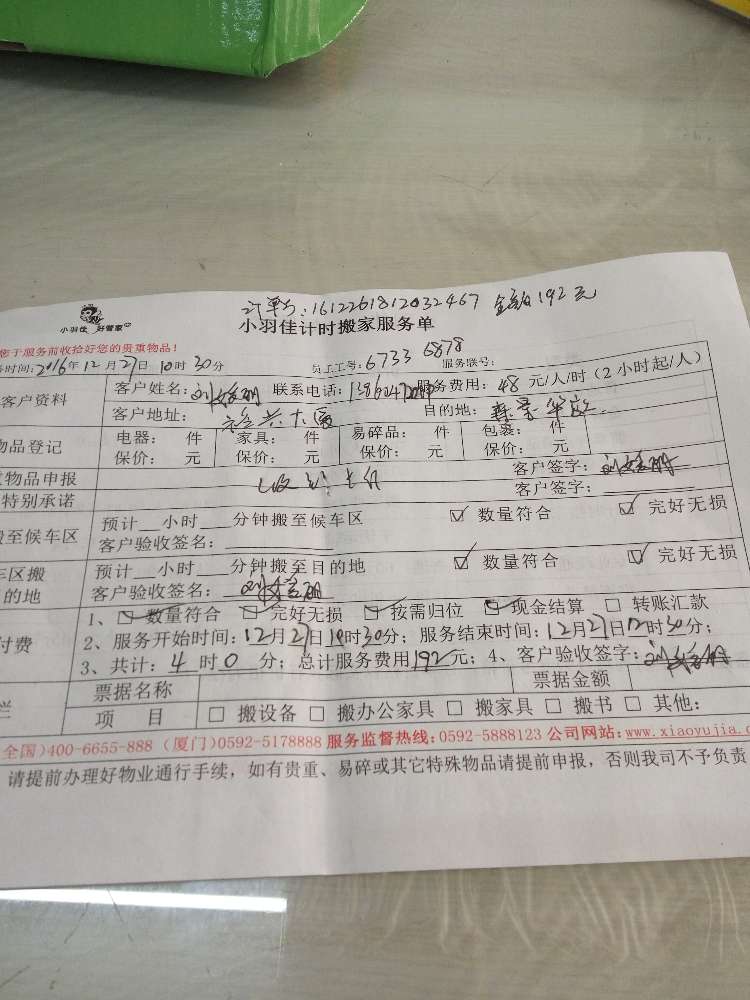 订单号:1612261812032467 金额192元
小羽佳 好管家
小羽佳计时搬家服务单
您于服务前收拾好您的贵重物品!
时间:2016年12月27日10时30分 员工工号:6733 6878 服务联号:
客户资料 客户姓名: 联系电话: 服务费用:48元/人/时(2小时起/人)
客户地址: 裕兴大厦 目的地:
物品登记 电器: 件 家具: 件 易碎品: 件 包裹: 件
保价: 元 保价: 元 保价: 元 保价: 元
物品申报 客户签字:
特别承诺 客户签字:
搬至候车区 预计__小时__分钟搬至候车区 ☑ 数量符合 ☑ 完好无损
客户验收签名:
车区搬 预计__小时__分钟搬至目的地 ☑ 数量符合 ☑ 完好无损
目的地 客户验收签名:
付费 1、☑ 数量符合 ☑ 完好无损 ☑ 按需归位 ☑ 现金结算 □ 转账汇款
2、服务开始时间:12月27日10时30分; 服务结束时间:12月27日12时30分;
3、共计:4时0分; 总计服务费用192元; 4、客户验收签字:
栏 票据名称 票据金额
项 目 □ 搬设备 □ 搬办公家具 □ 搬家具 □ 搬书 □ 其他:
全国)400-6655-888 (厦门)0592-5178888 服务监督热线:0592-5888123 公司网站:www.xiaoyujia.c
请提前办理好物业通行手续,如有贵重、易碎或其它特殊物品请提前申报,否则我司不予负责